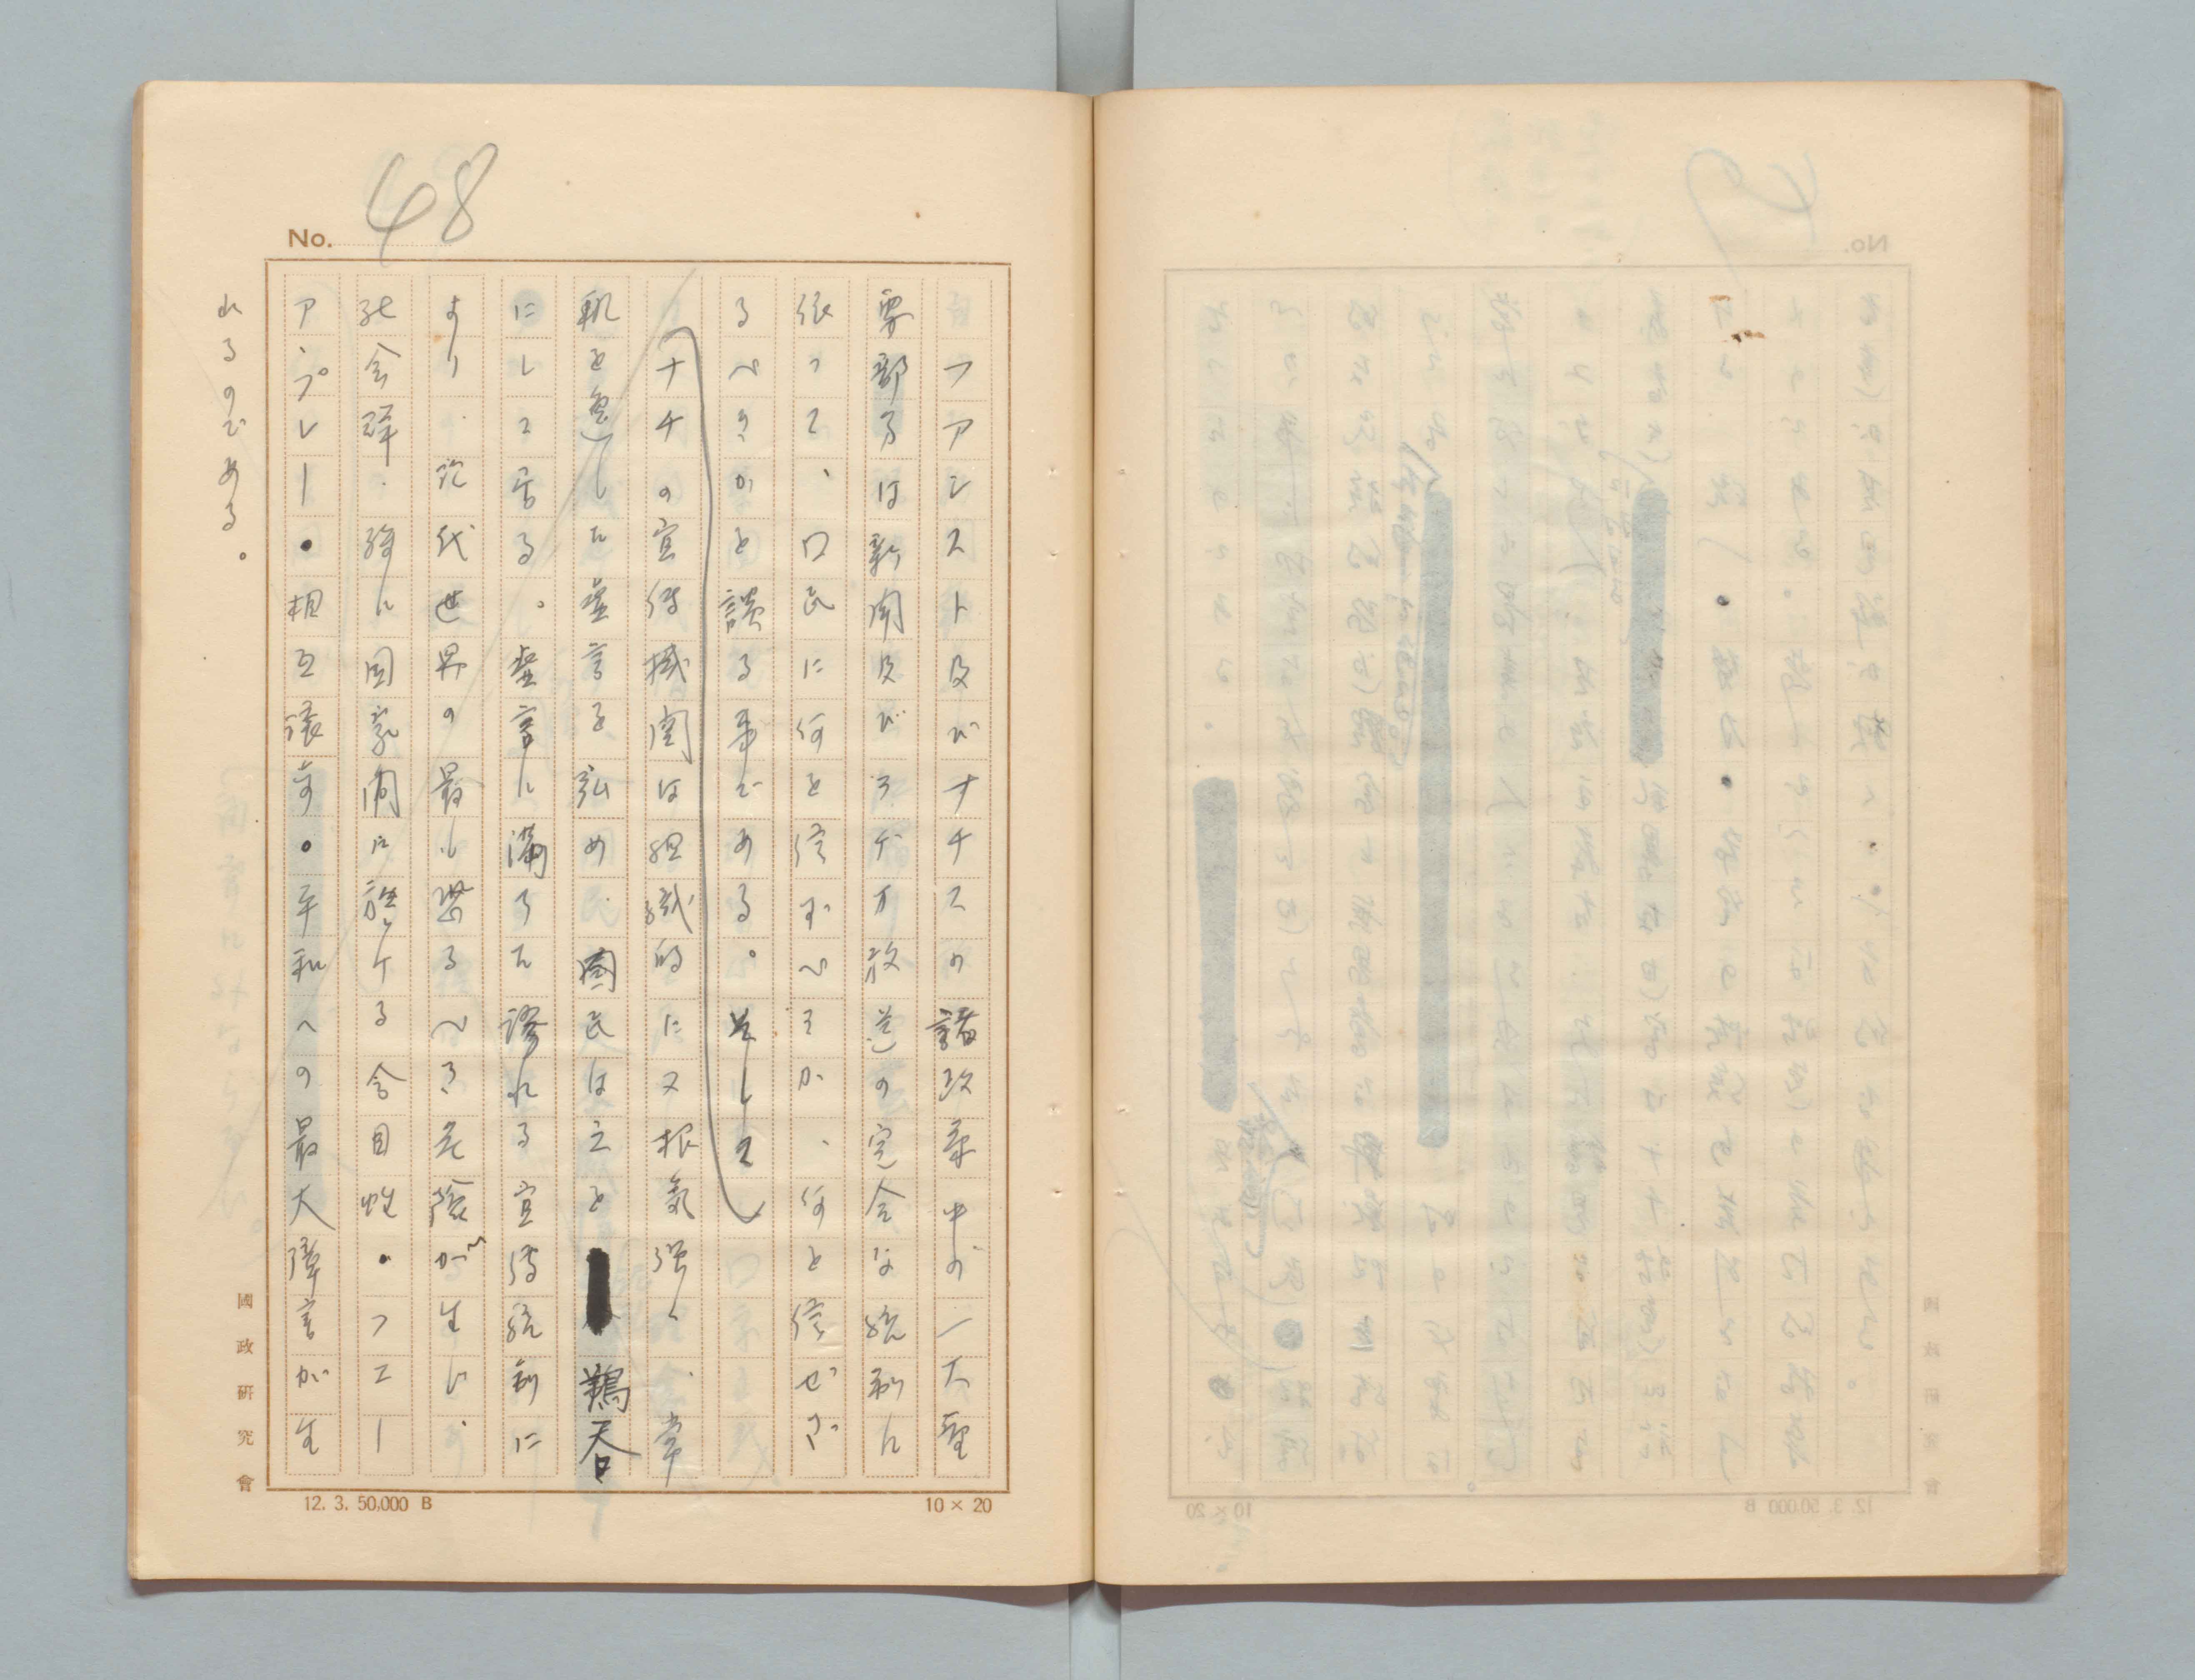 No. 48
ファシスト及びナチスの諸政策中の一大重
要部分は新聞及びラヂオ放送の完全な統制に
依つて、口民に何を信ずべきか、何を信ぜざ
るべきかを語る事である。そして
ナチの宣伝機関は組織的に又根気強く、常
軌を逸した虚言を弘め、國民は之を鵜呑
にして居る。虚言に満ちた謬れる宣伝統制に
より、現代世界の最も恐るべき危険が生じ、
社会群・殊に国家間に於ける合目性・フエー
ア、プレー・相互譲歩・平和への最大障害が生
れるのである。
國政研究會
12. 3. 50,000 B
10×20